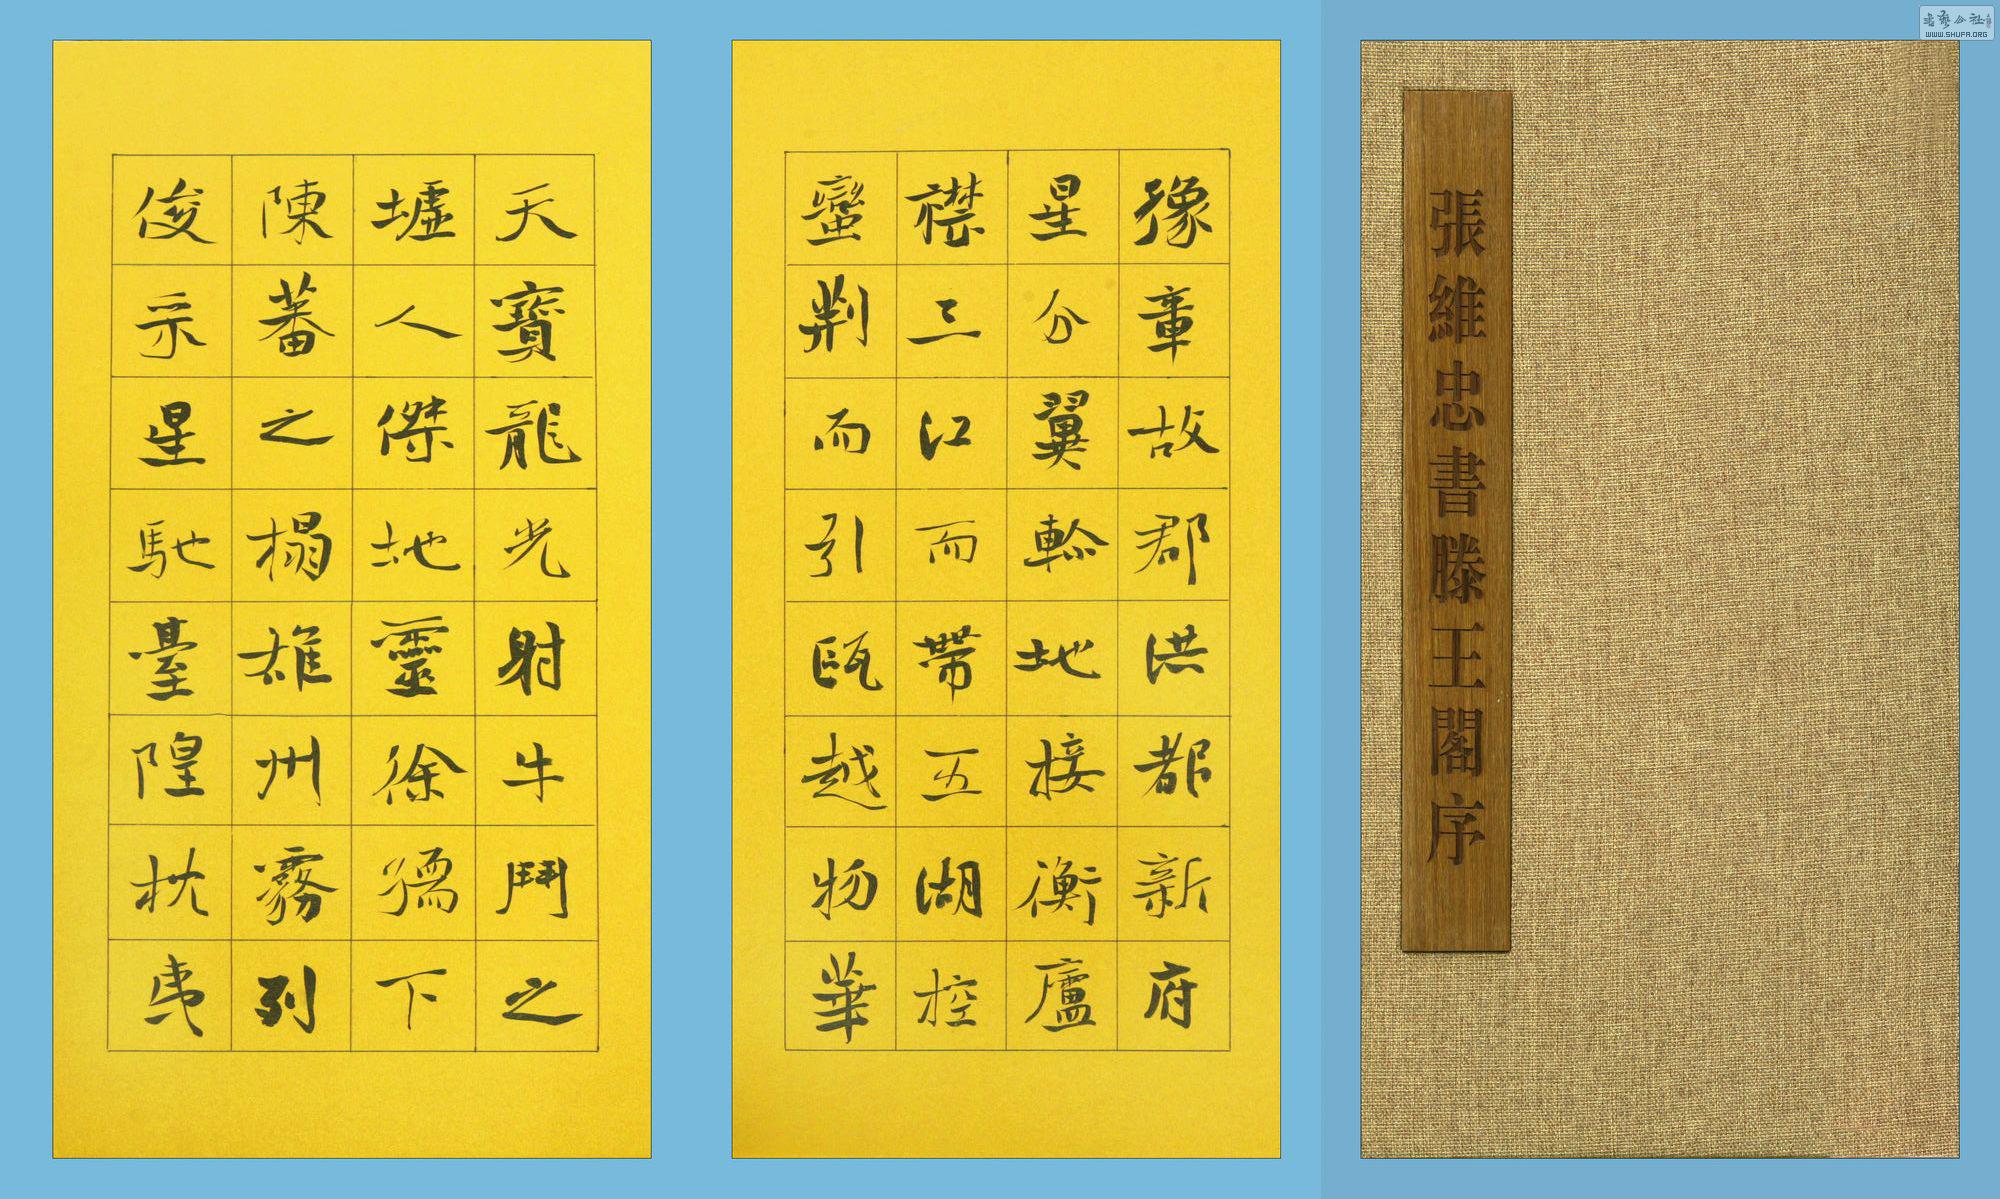 張維忠書滕王閣序
豫章故郡洪都新府
星分翼軫地接衡廬
襟三江而帶五湖控
蠻荆而引甌越物華
天寶龍光射牛鬥之
墟人傑地靈徐孺下
陳蕃之榻雄州霧列
俊采星馳臺隍枕夷
書藝公社
WWW.SHUFA.ORG